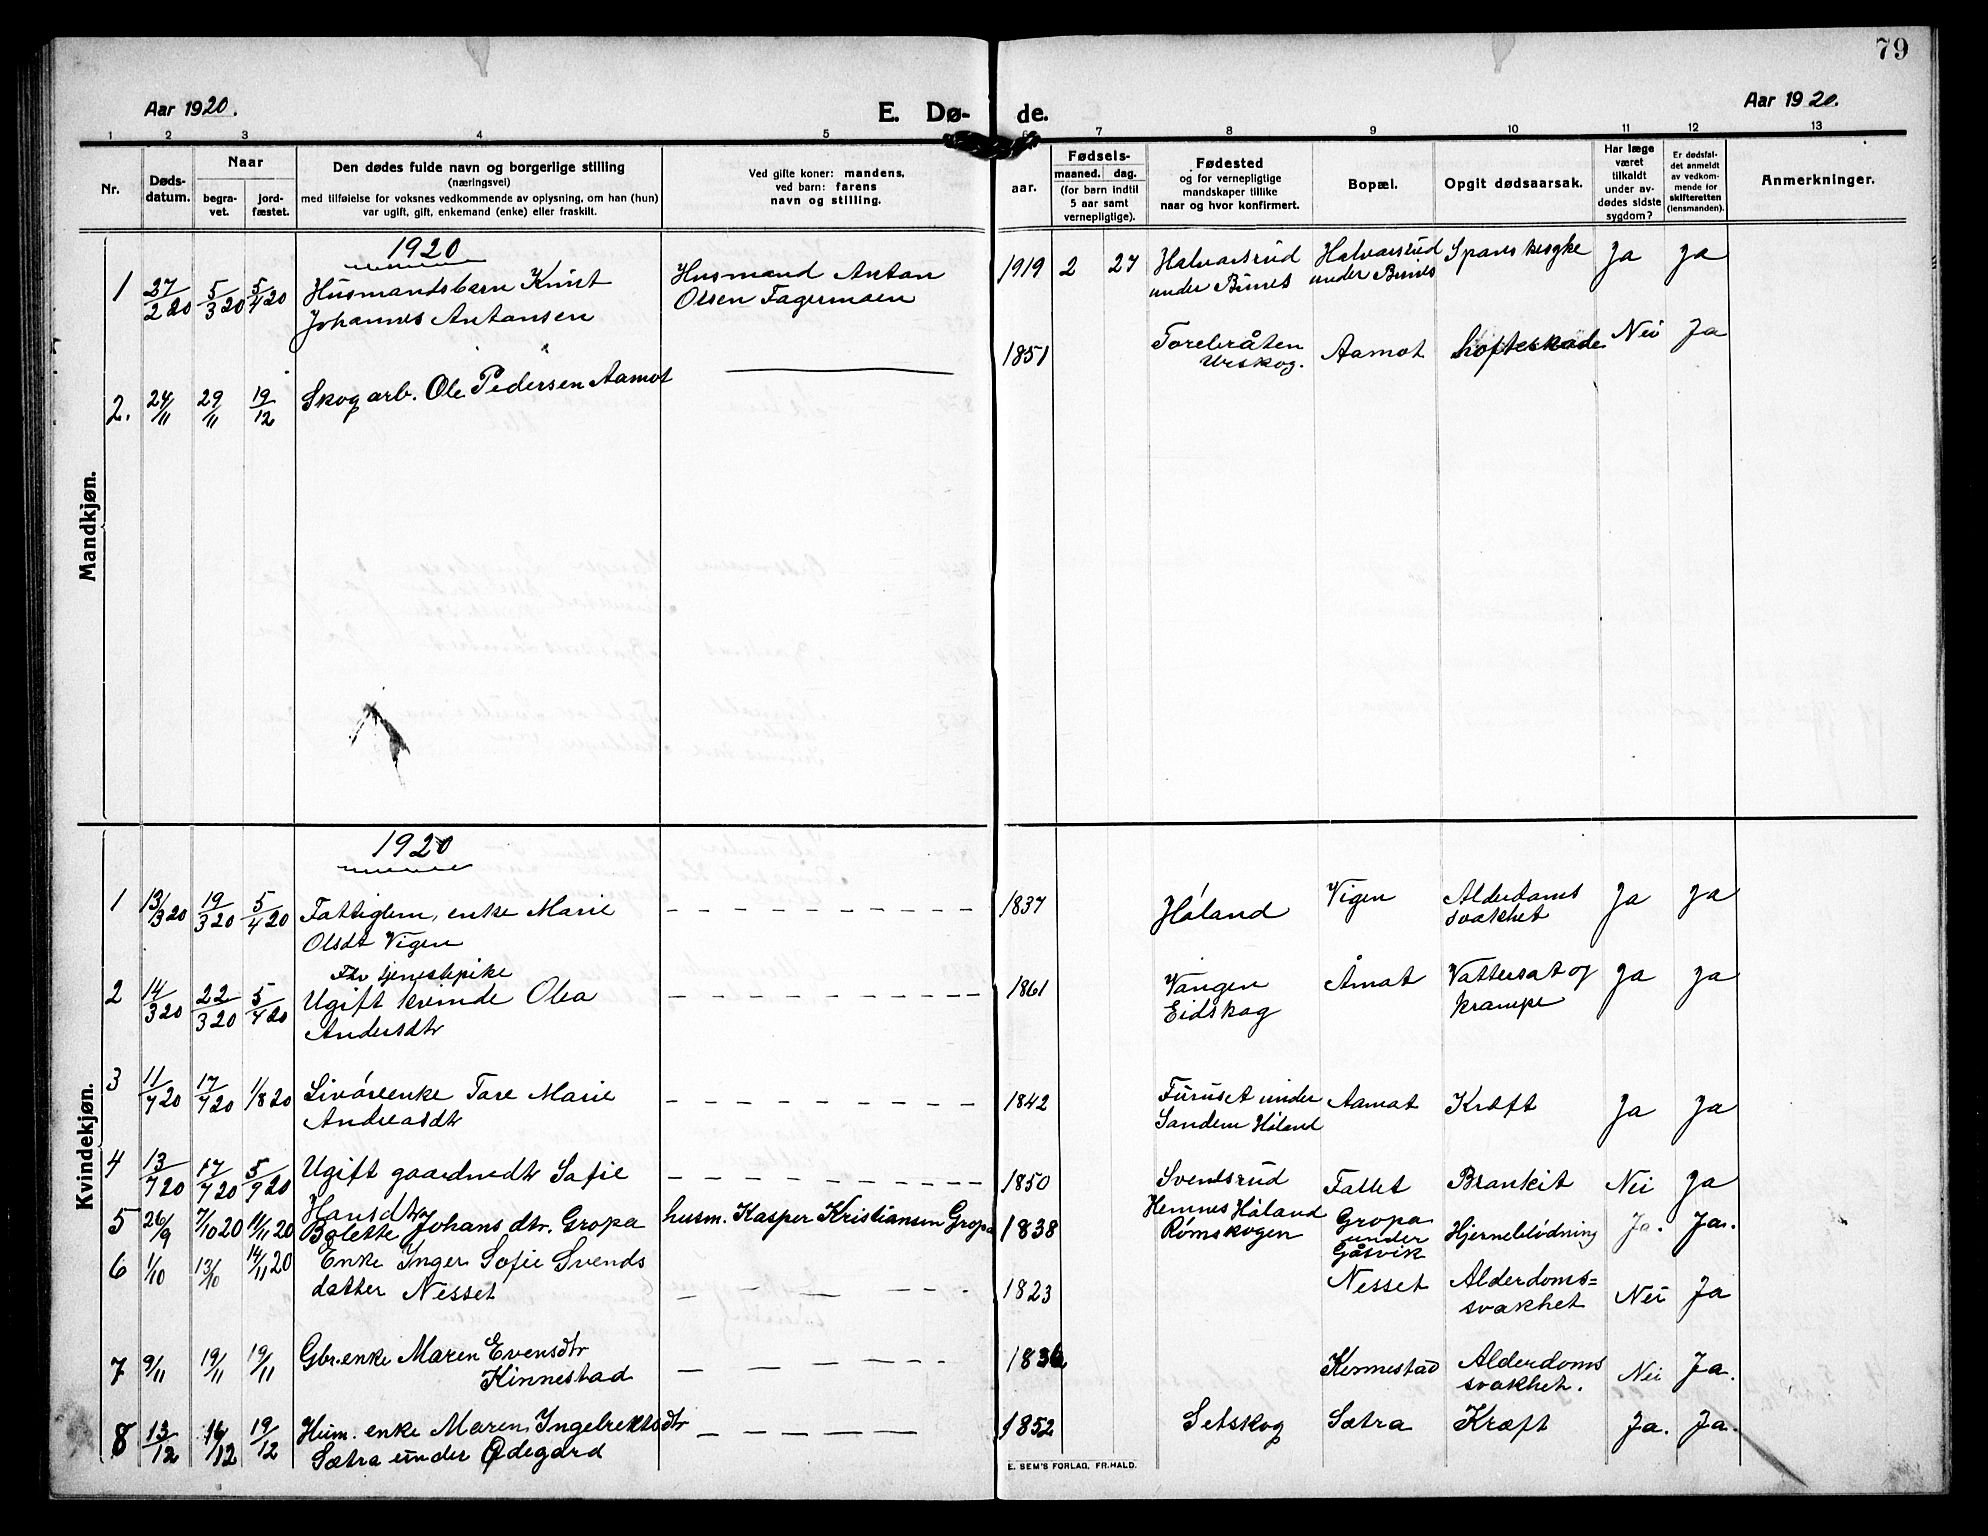 79
Aar 1920.
E. Dø-
de.
Aar 1920.
1 2 3 4 5 6 7 8 9 10 11 12 13
Nr.
Døds-
datum.
Naar
begra-
vet.
jord-
fæstet.
Den dødes fulde navn og borgerlige stilling
(næringsvei)
med tilføielse for voksnes vedkommende av oplysning, om han (hun)
var ugift, gift, enkemand (enke) eller fraskilt.
Ved gifte koner: mandens,
ved barn: farens
navn og stilling.
aar.
Fødsels-
maaned. dag.
(for barn indtil
5 aar samt
vernepligtige).
Fødested
og for vernepligtige
mandskaper tillike
naar og hvor konfirmert.
Bopæl.
Opgit dødsaarsak.
Har læge
været
tilkaldt
under av-
dødes sidste
sygdom?
Er dødsfal-
det anmeldt
av vedkom-
mende for
skifteretten
(lensmanden).
Anmerkninger.
Mandkjøn.
1920
1 27/2 20 5/3 20 5/4 20 Husmandsbarn Knut Husmand Anton 1919 2 27 Halvarsrud Halvarsrud Spansksyke Ja Ja
Johannes Antonsen Olsen Fagermoen under Bunes under Bunes
2. 24/11 29/11 19/12 Skogarb. Ole Pedersen Aamot 1851 Torebråten Aamot hofteskade Nei Ja
Urskog.
Kvindekjøn.
1920
1 13/3 20 19/3 20 5/4 20 Fattiglem, enke Marie 1837 Høland Vigen Alderdoms Ja Ja
Olsdt Vigen svakhet
Fhv tjenestepike
2 14/3 20 22/3 20 5/4 20 Ugift kvinde Olea 1861 Vangen Åmot Vattersot og Ja Ja
Andersdtr Eidskog krampe
3 11/7 20 17/7 20 1/8 20 Livørenke Tore Marie 1842 Furuset under Aamot Kræft Ja Ja
Andreasdtr Sandem Høland
4 13/7 20 17/7 20 5/9 20 Ugift gaardmdtr Sofie 1850 Svendsrud Fallet Brankit Nei Ja
Hansdtr Hemnes Høland
5 26/9 7/10 20 14/11 20 Bolette Johansdtr. Gropa husm. Kasper Kristiansen Gropa 1838 Rømskogen Gropa under Gåsvik Hjerneblødning Ja. Ja.
6 1/10 13/10 14/11 20 Enke Inger Sofie Svends 1823 Nesset Alderdoms= Nei Ja
datter Nesset svakhet
7 9/11 19/11 19/11 Gbr.enke Maren Evensdtr 1836 Kinnestad Alderdoms Nei Ja.
Kinnestad svakhet.
8 13/12 16/12 19/12 Hum. enke Maren Ingebrektsdtr 1852 Setskog Sætra Kræft Ja. Ja.
Sætra under Ødegård
E. SEM'S FORLAG, FR.HALD.